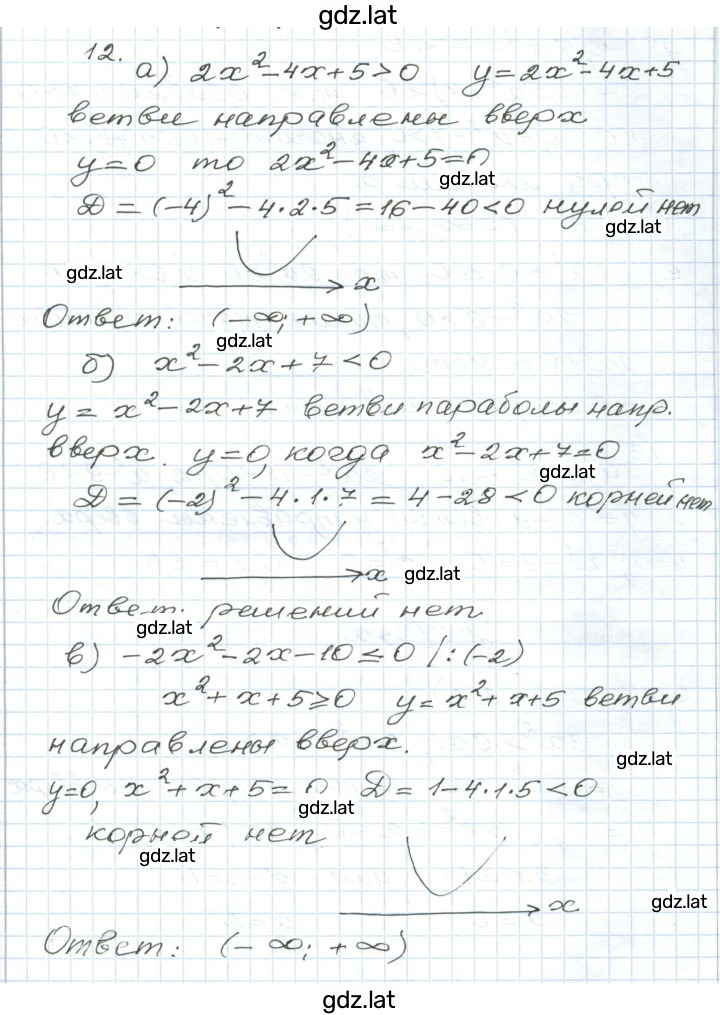 gdz.lat
12. а) 2x² - 4x + 5 > 0 y = 2x² - 4x + 5
ветви направлены вверх
y = 0 то 2x² - 4x + 5 = 0
gdz.lat
D = (-4)² - 4·2·5 = 16 - 40 < 0 нулей нет
gdz.lat
gdz.lat
x
Ответ: (-∞; +∞)
gdz.lat
б) x² - 2x + 7 < 0
y = x² - 2x + 7 ветви параболы напр.
вверх. y = 0, когда x² - 2x + 7 = 0
gdz.lat
D = (-2)² - 4·1·7 = 4 - 28 < 0 корней нет
x gdz.lat
Ответ. решений нет
gdz.lat
в) -2x² - 2x - 10 ≤ 0 /:(-2)
x² + x + 5 ≥ 0 y = x² + x + 5 ветви
направлены вверх.
gdz.lat
y=0, x² + x + 5 = 0 D = 1 - 4·1·5 < 0
gdz.lat
корной нет
gdz.lat
x gdz.lat
Ответ: (-∞; +∞)
gdz.lat